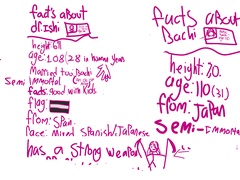 facts about
dr.ishi
height 6'11
age: 108 (28 in human years
married too: Bachi
Semi Immortal
facts: good with kids
flag:
from: Spain
race: mixed Spanish/Japanese
has a strong weapon
facts about
Bachi
height: 7.0.
age: 110 (31)
from: Japan
Semi-Immortal